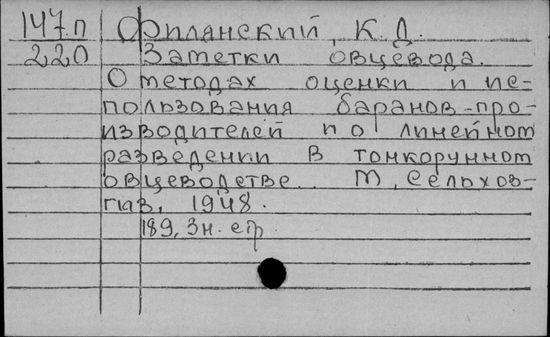 147п Филянский, К. Д.
220 Заметки овцевода.
О методах оценки и ис-
пользования баранов-про-
изводителей по линейном
разведении в тонкорунном
овцеводстве. М, Сельхоз-
гиз, 1948.
189, 3н. стр.